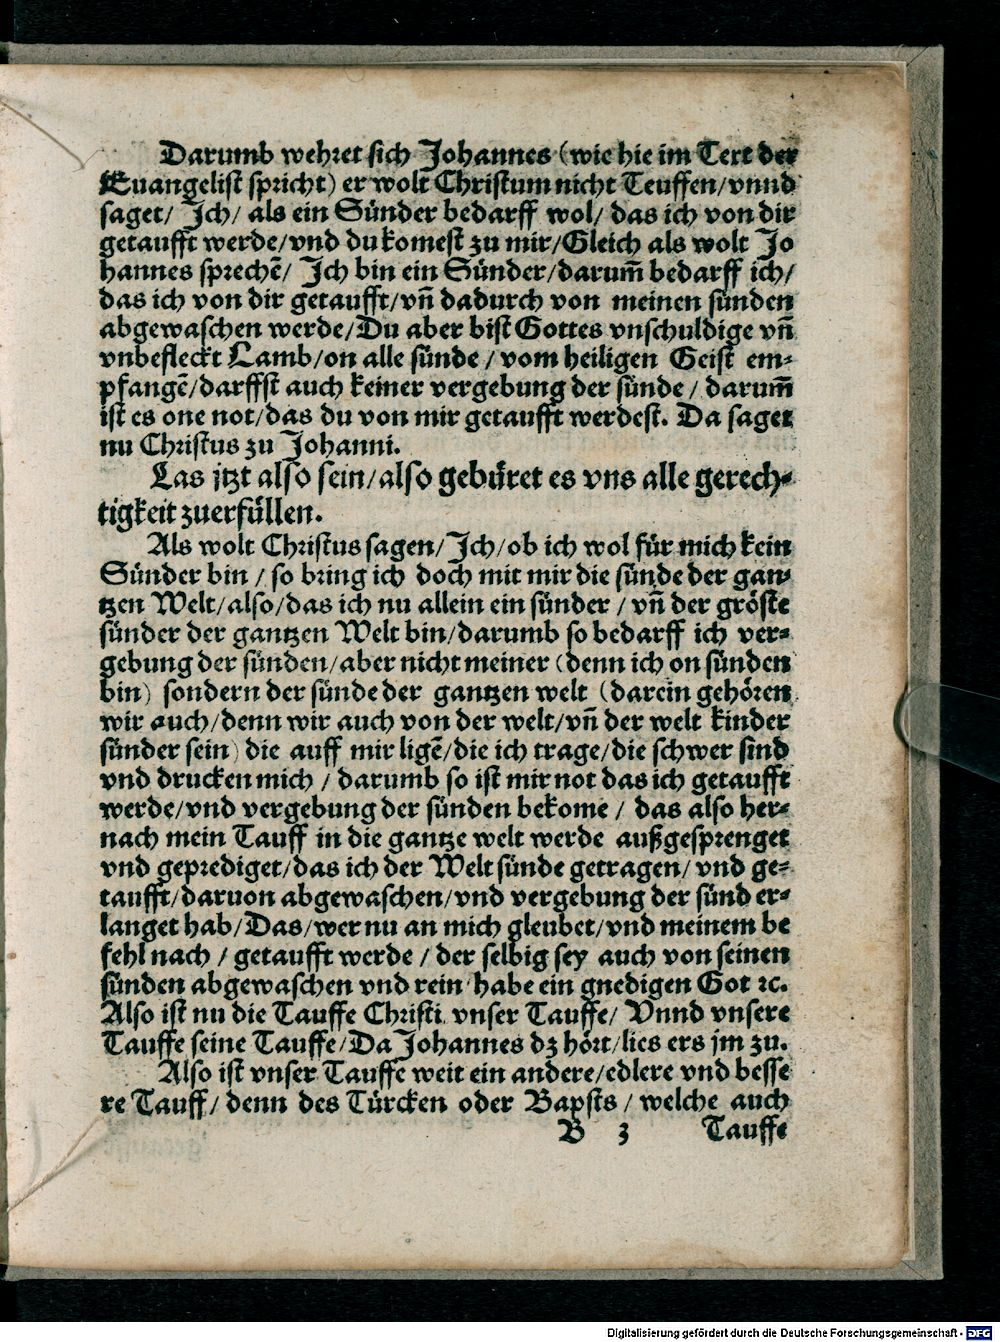 Darumb wehret sich Johannes (wie hie im Text der
Euangelist spricht) er wolt Christum nicht Teuffen/vnnd
saget/ Jch/ als ein Sünder bedarff wol/ das ich von dir
getaufft werde/vnd du komest zu mir/Gleich als wolt Jo
hannes sprechē/ Jch bin ein Sünder/darum̄ bedarff ich/
das ich von dir getaufft/vn̄ dadurch von meinen sünden
abgewaschen werde/Du aber bist Gottes vnschuldige vn̄
vnbefleckt Lamb/on alle sünde/vom heiligen Geist em⸗
pfangē/darffst auch keiner vergebung der sünde/ darum̄
ist es one not/das du von mir getaufft werdest. Da saget
nu Christus zu Johanni.
Las jtzt also sein/also gebüret es vns alle gerech⸗
tigkeit zuerfüllen.
Als wolt Christus sagen/Jch/ob ich wol für mich kein
Sünder bin/so bring ich doch mit mir die sünde der gan⸗
tzen Welt/also/das ich nu allein ein sünder/vn̄ der gröste
sünder der gantzen Welt bin/darumb so bedarff ich ver⸗
gebung der sünden/aber nicht meiner (denn ich on sünden
bin) sondern der sünde der gantzen welt (darein gehören
wir auch/denn wir auch von der welt/vn̄ der welt kinder
sünder sein) die auff mir ligē/die ich trage/die schwer sind
vnd drucken mich/ darumb so ist mir not das ich getaufft
werde/vnd vergebung der sünden bekome/ das also her⸗
nach mein Tauff in die gantze welt werde außgesprenget
vnd geprediget/das ich der Welt sünde getragen/vnd ge⸗
taufft/daruon abgewaschen/vnd vergebung der sünd er⸗
langet hab/Das/wer nu an mich gleubet/vnd meinem be
fehl nach/getaufft werde/der selbig sey auch von seinen
sünden abgewaschen vnd rein/habe ein gnedigen Got ꝛc.
Also ist nu die Tauffe Christi vnser Tauffe/ Vnnd vnsere
Tauffe seine Tauffe/Da Johannes dz hört/lies ers jm zu.
Also ist vnser Tauffe weit ein andere/edlere vnd besse
re Tauff/denn des Türcken oder Bapsts/welche auch
B 3 Tauffe
Digitalisierung gefördert durch die Deutsche Forschungsgemeinschaft - DFG